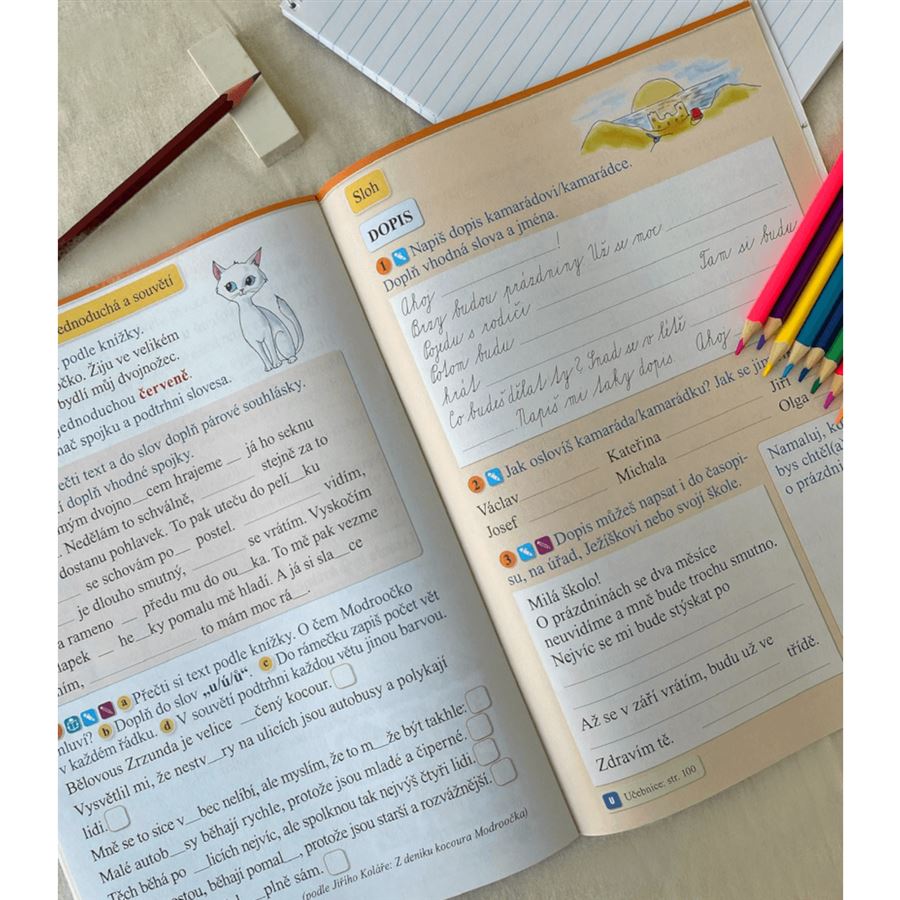 jednoduchá a souvětí
podle knížky.
očko. Žiju ve velikém
bydlí můj dvojnožec.
jednoduchou červeně.
spojku a podtrhni slovesa.
text a do slov doplň párové souhlásky.
doplň vhodné spojky.
dvojno__cem hrajeme __ já ho seknu
. Nedělám to schválně, ______ stejně za to
dostanu pohlavek. To pak uteču do pelí__ku
______ se schovám po__ postel. ______ vidím,
je dlouho smutný, ______ se vrátím. Vyskočím
a rameno __ předu mu do ou__ka. To mě pak vezme
__ he__ky pomalu mě hladí. A já si sla__ce
______ to mám moc rá__.
a Přečti si text podle knížky. O čem Modroočko
mluví? b Doplň do slov „u/ú/ů“. c Do rámečku zapiš počet vět
v každém řádku. d V souvětí podtrhni každou větu jinou barvou.
Bělovous Zrzunda je velice __čený kocour.
Vysvětlil mi, že nestv__ry na ulicích jsou autobusy a polykají
lidi.
Mně se to sice v__bec nelíbí, ale myslím, že to m__že být takhle.
Malé autob__sy běhají rychle, protože jsou mladé a čiperné.
Těch běhá po __licích nejvíc, ale spolknou tak nejvýš čtyři lidi.
běhají pomal__, protože jsou starší a rozvážnější.
__plně sám.
(podle Jiřího Koláře: Z deníku kocoura Modroočka)
Sloh
DOPIS
1 Napiš dopis kamarádovi/kamarádce.
Doplň vhodná slova a jména.
Ahoj ______!
Brzy budou prázdniny. Už se moc ______
Pojedu s rodiči ______. Tam si budu
Potom budu ______
hrát ______
Co budeš dělat ty? Snad se v létě
______. Napiš mi taky dopis. Ahoj
2 Jak oslovíš kamaráda/kamarádku? Jak se
Václav ______ Kateřina ______ Jiří
Josef ______ Michala ______ Olga
3 Dopis můžeš napsat i do časopi-
su, na úřad, Ježíškovi nebo svojí škole.
Milá školo!
O prázdninách se dva měsíce
neuvidíme a mně bude trochu smutno.
Nejvíc se mi bude stýskat po
______
Až se v září vrátím, budu už ve
______ třídě.
Zdravím tě. ______
Namaluj,
bys chtěl(a)
o prázdni
U Učebnice: str. 100